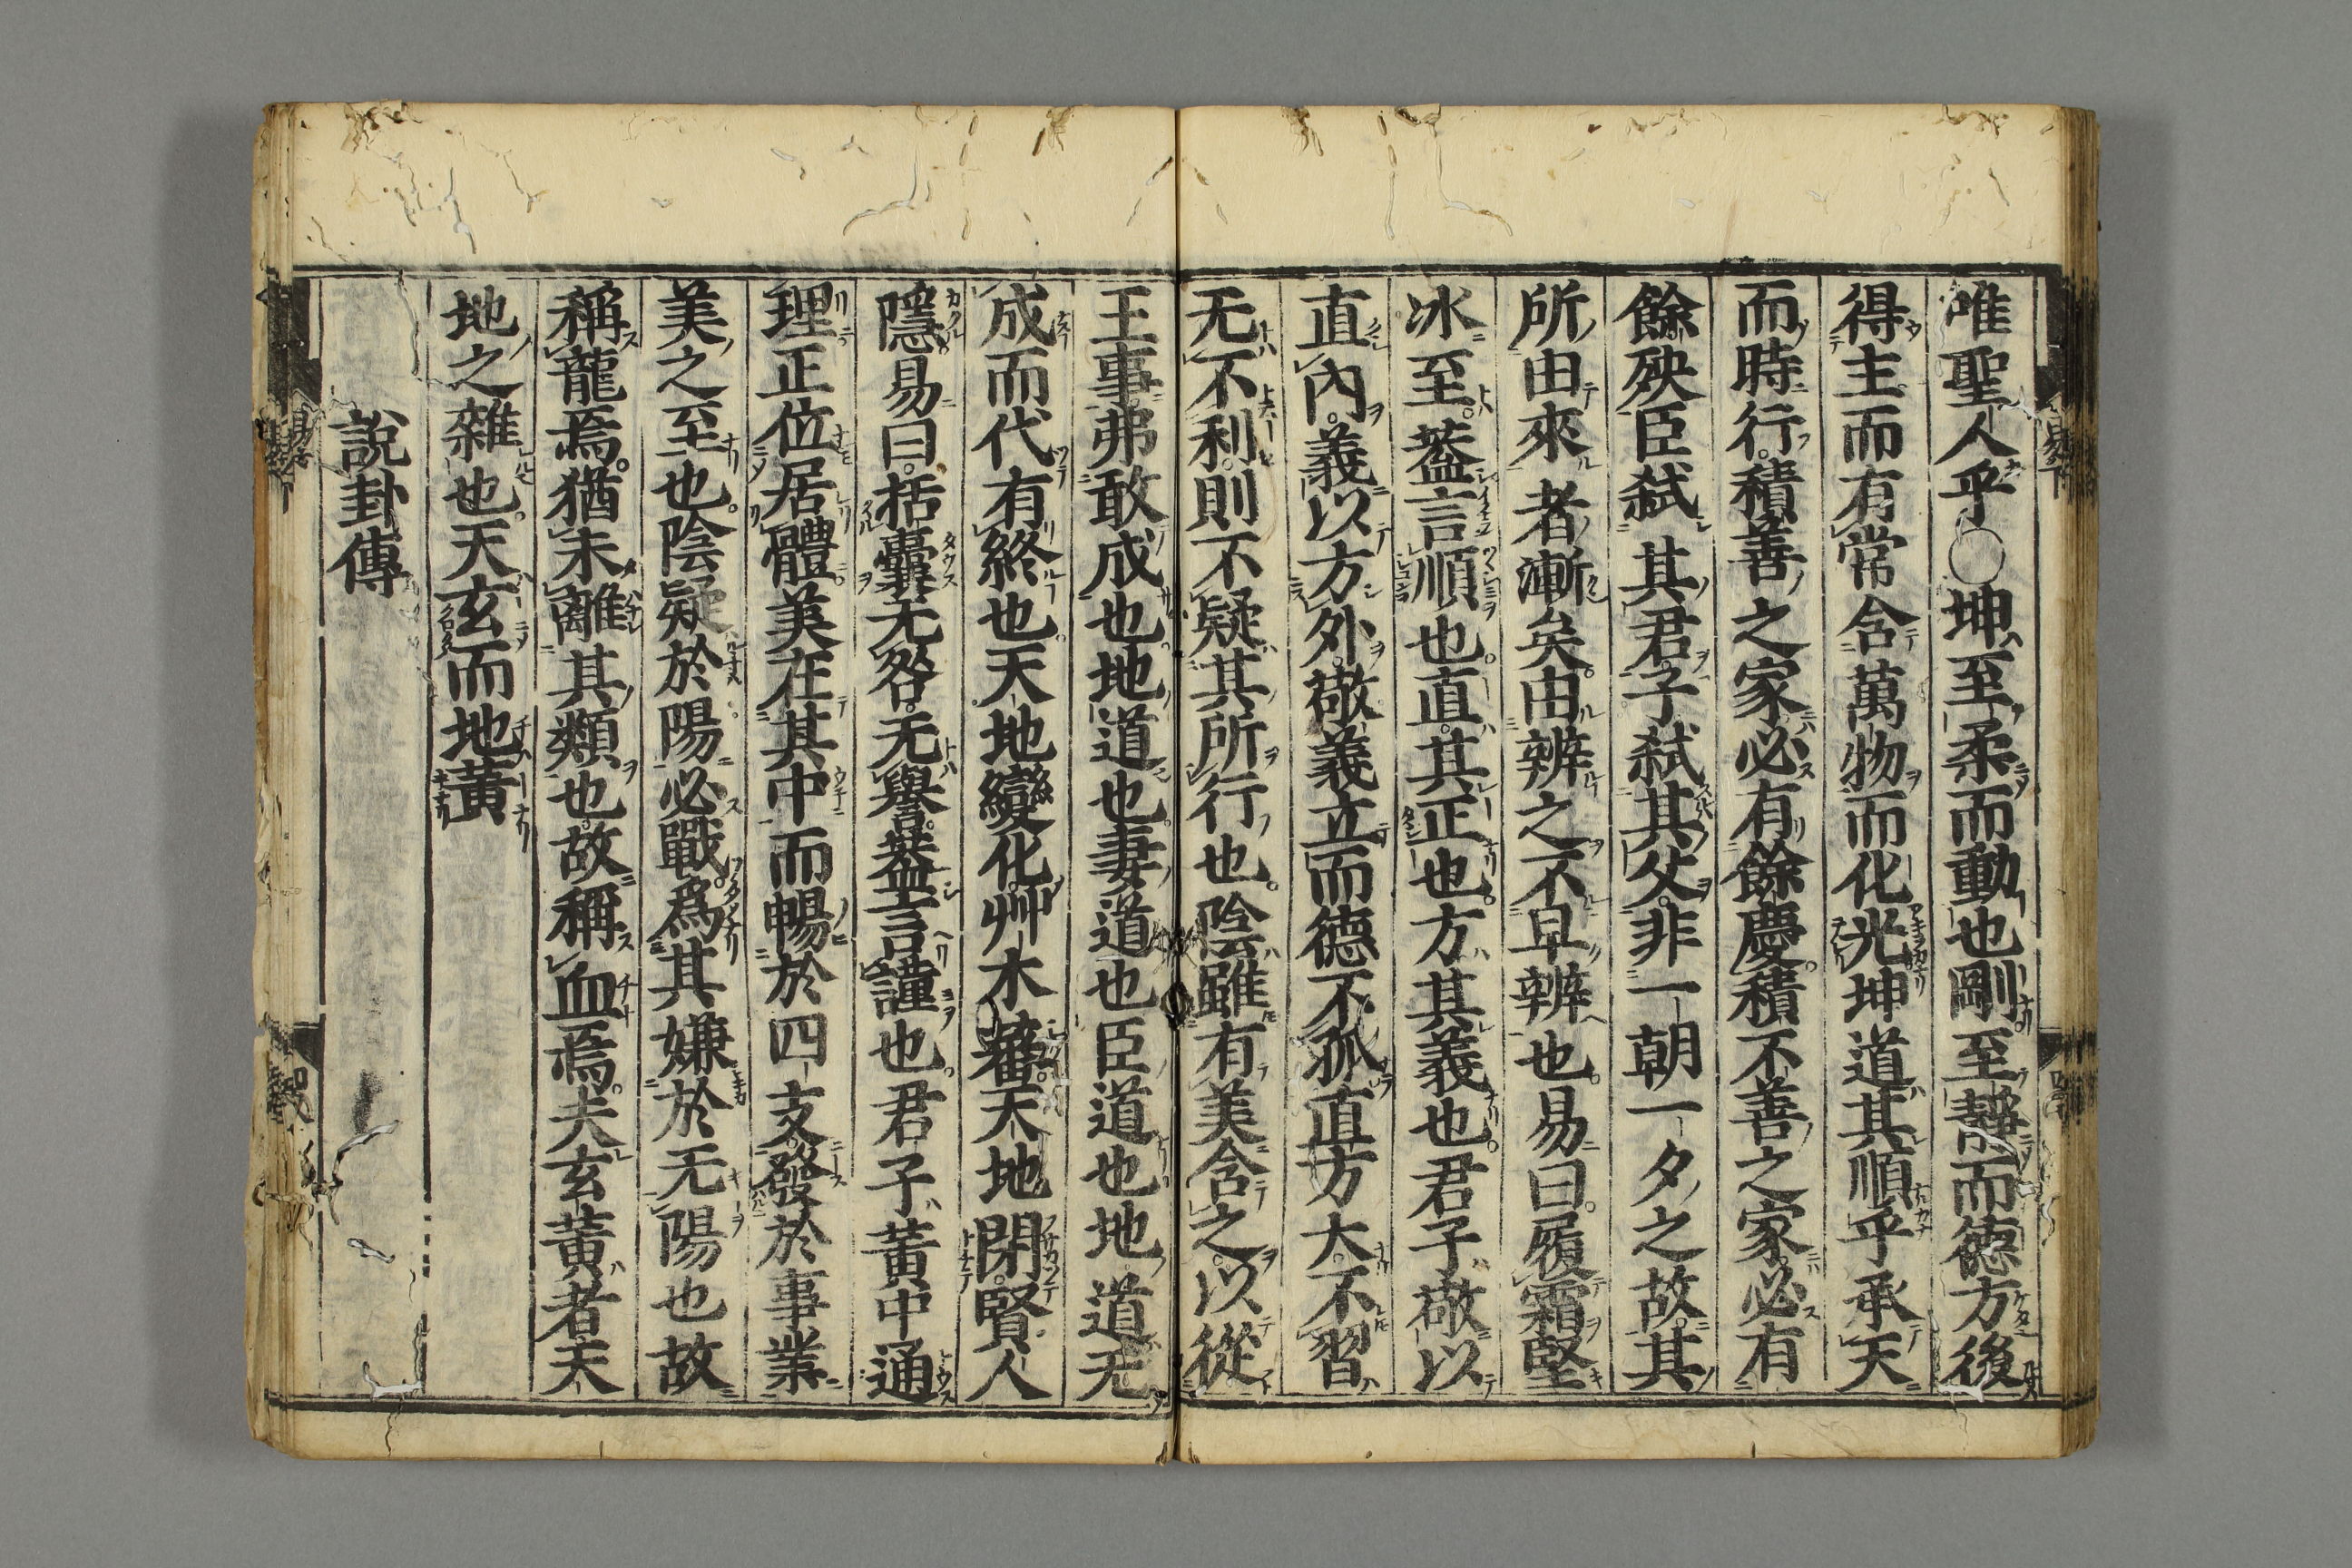 唯聖人乎○坤至柔而動也剛至靜而德方後
得主而有常含萬物而化光坤道其順乎承天
而時行積善之家必有餘慶積不善之家必有
餘殃臣弑其君子弑其父非一朝一夕之故其
所由來者漸矣由辨之不早辨也易曰履霜堅
冰至蓋言順也直其正也方其義也君子敬以
直內義以方外敬義立而德不孤直方大不習
无不利則不疑其所行也陰雖有美含之以從
王事弗敢成也地道也妻道也臣道也地道无
成而代有終也天地變化艸木蕃天地閉賢人
隱易曰括囊无咎无譽蓋言謹也君子黃中通
理正位居體美在其中而暢於四支發於事業
美之至也陰疑於陽必戰爲其嫌於无陽也故
稱龍焉猶未離其類也故稱血焉夫玄黃者天
地之雜也天玄而地黃
說卦傳